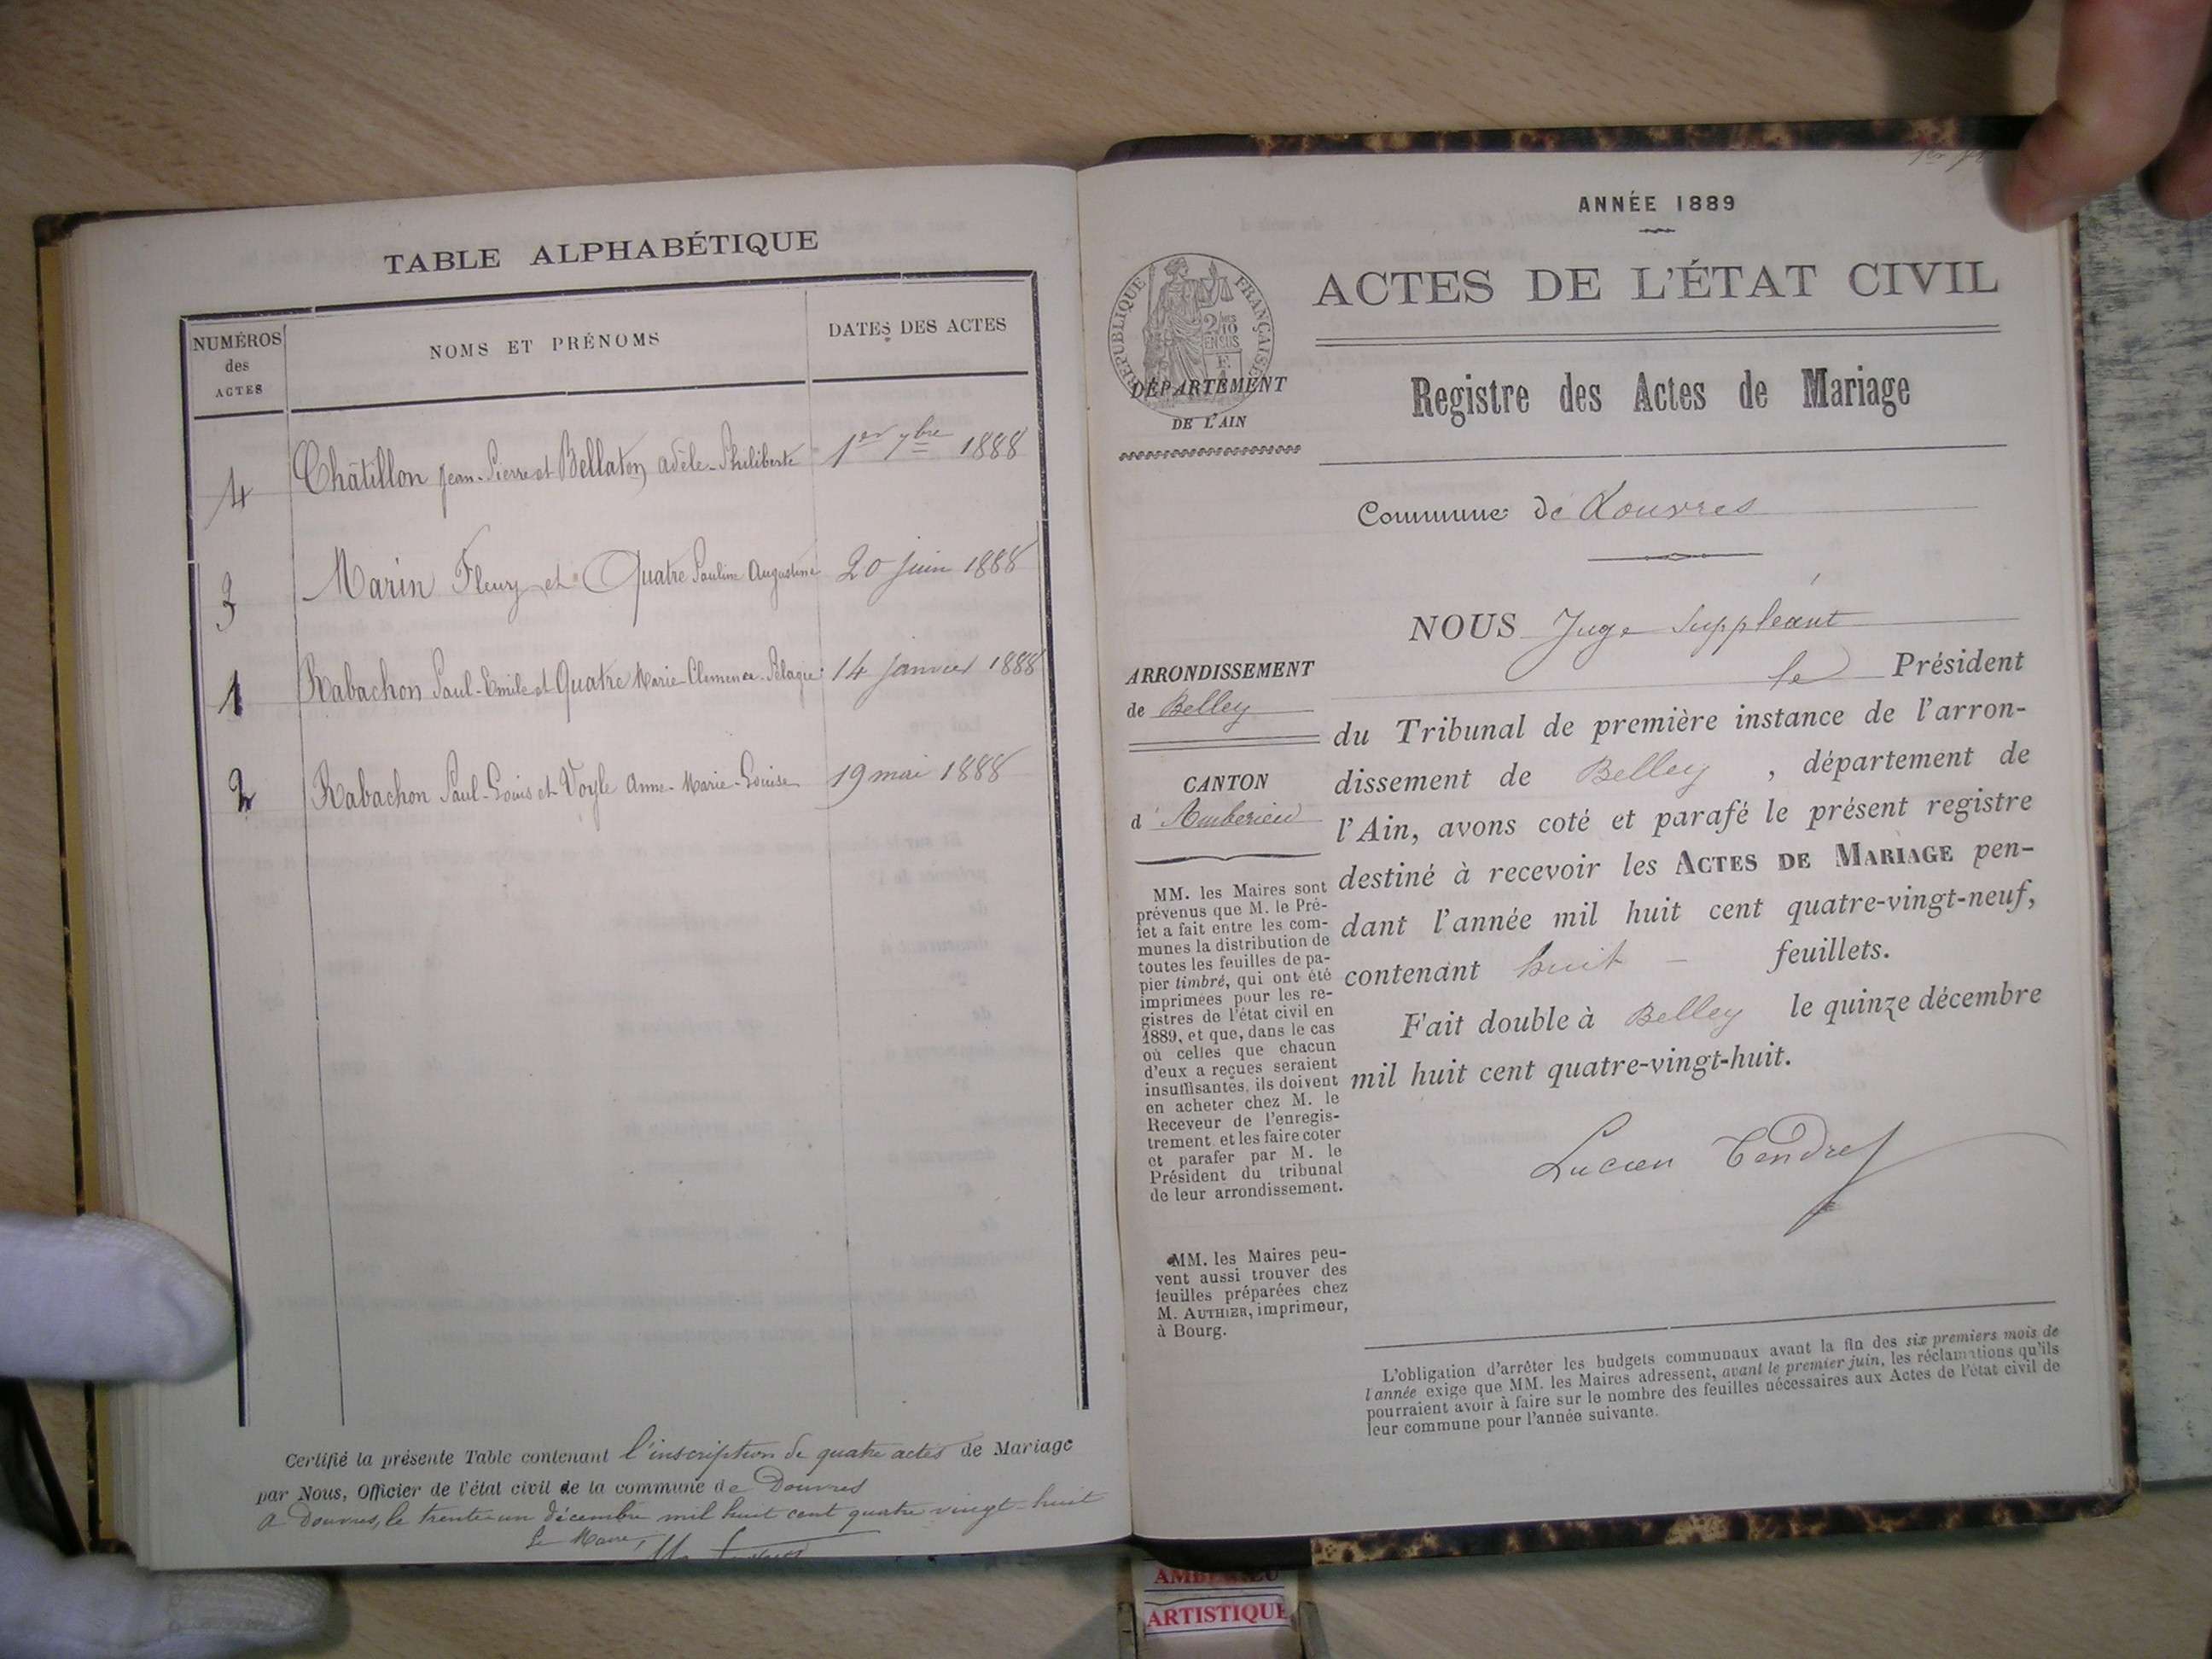 TABLE ALPHABÉTIQUE
NUMÉROS
des
ACTES
NOMS ET PRÉNOMS
DATES DES ACTES
4 Châtillon Jean-Pierre et Bellaton Adèle-Philiberte 1er 7bre 1888
3 Marin Fleury et Quatre Pauline Augustine 20 juin 1888
1 Rabachon Paul-Emile et Quatre Marie-Clemence-Pélagie 14 janvier 1888
2 Rabachon Paul-Louis et Voyle Anne-Marie-Louise 19 mai 1888
Certifié la présente Table contenant l'inscription de quatre actes de Mariage
par Nous, Officier de l'état civil de la commune de Douvres
A Douvres, le trente-un décembre mil huit cent quatre vingt-huit
Le Maire,
ANNÉE 1889
ACTES DE L'ÉTAT CIVIL
RÉPUBLIQUE FRANÇAISE
2/10
EN SUS
DÉPARTEMENT
DE L'AIN
Registre des Actes de Mariage
Commune de Douvres
NOUS Juge Suppléant
le Président
ARRONDISSEMENT
de Belley
CANTON
d'Amberieu
du Tribunal de première instance de l'arron-
dissement de Belley, département de
l'Ain, avons coté et parafé le présent registre
destiné à recevoir les ACTES DE MARIAGE pen-
dant l'année mil huit cent quatre-vingt-neuf,
contenant huit - feuillets.
Fait double à Belley le quinze décembre
mil huit cent quatre-vingt-huit.
Lucien Tendret
MM. les Maires sont
prévenus que M. le Pré-
fet a fait entre les com-
munes la distribution de
toutes les feuilles de pa-
pier timbré, qui ont été
imprimées pour les re-
gistres de l'état civil en
1889, et que, dans le cas
où celles que chacun
d'eux a reçues seraient
insuffisantes, ils doivent
en acheter chez M. le
Receveur de l'enregis-
trement et les faire coter
et parafer par M. le
Président du tribunal
de leur arrondissement.
MM. les Maires peu-
vent aussi trouver des
feuilles préparées chez
M. AUTHIER, imprimeur,
à Bourg.
L'obligation d'arrêter les budgets communaux avant la fin des six premiers mois de
l'année exige que MM. les Maires adressent, avant le premier juin, les réclamations qu'ils
pourraient avoir à faire sur le nombre des feuilles nécessaires aux Actes de l'état civil de
leur commune pour l'année suivante.
ARTISTIQUE